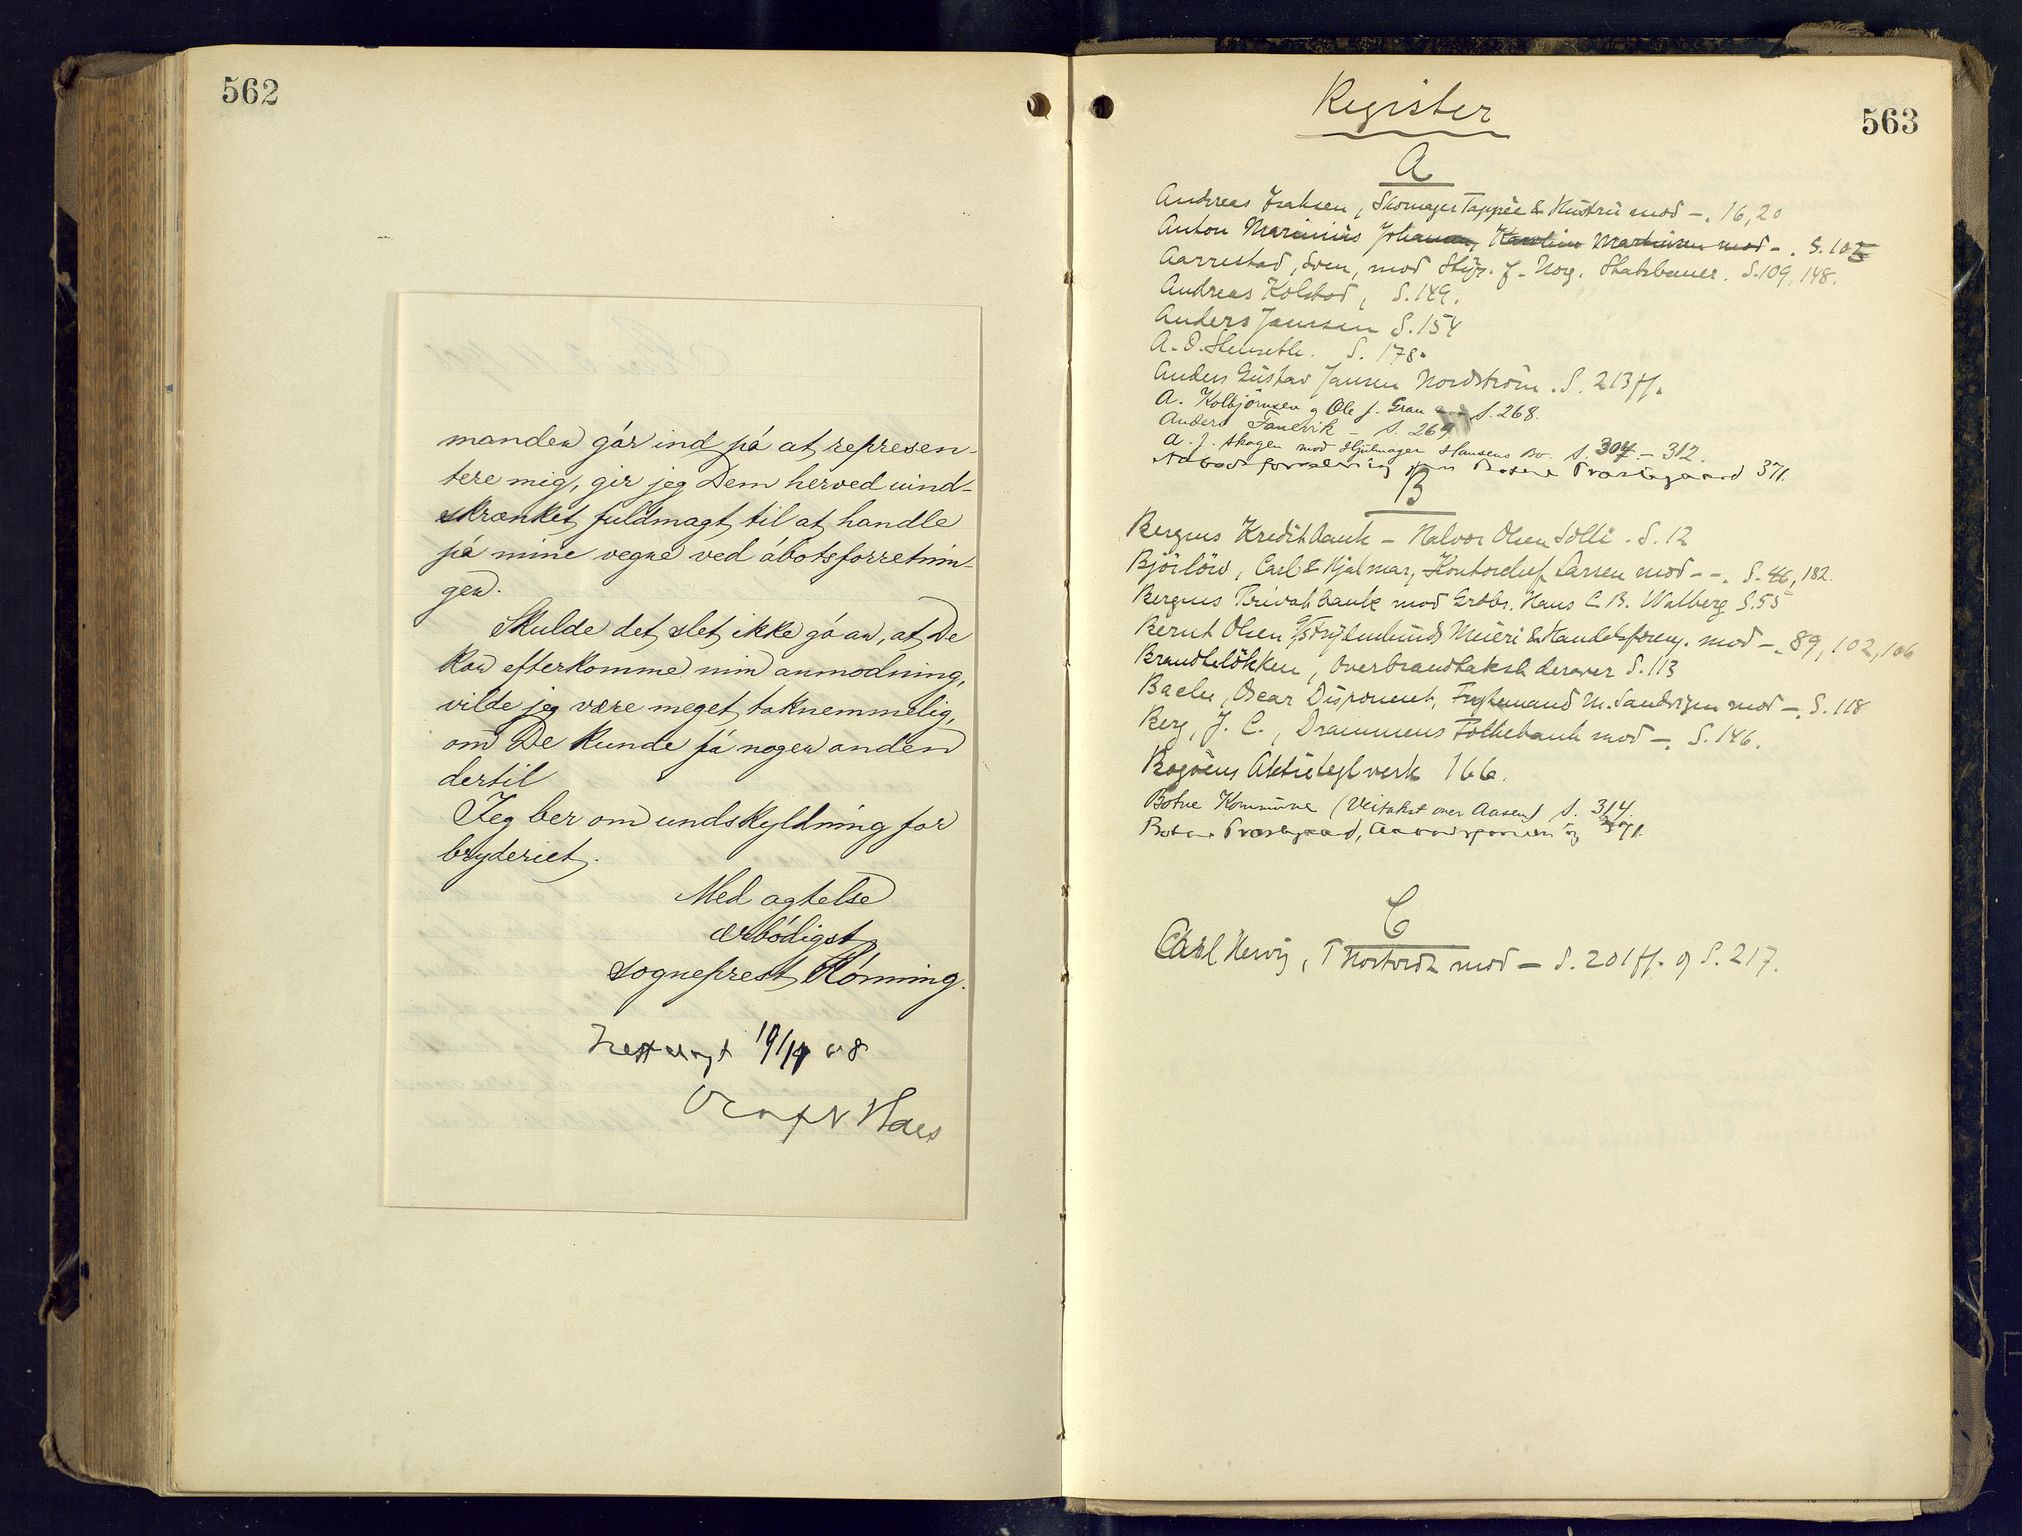 562
manden går ind på at represen-
tere mig, gir jeg Dem herved uind-
skrænket fuldmagt til at handle
på mine vegne ved åbotsforretnin-
gen.
Skulde det slet ikke gå an, at De
kan efterkomme min anmodning,
vilde jeg være meget taknemmelig,
om De kunde få nogen anden
dertil
Jeg ber om undskyldning for
bryderiet.
Med agtelse
ærbödigst
sogneprest Rönning.
19/11 08
563
Register
A
Andreas Isaksen, Skomager Tappèe & Hustru mod -. 16, 20
Anton Marinius Johansen, Karoline Martinsen mod -. S. 105
Aarrestad, Sven, mod Styr. f. Norg. Statsbaner. S. 109, 148.
Andreas Kolstad, S. 149.
Anders Jansen S. 154
A. O. Stenseth. S. 178.
Anders Gustav Jansen Nordström. S. 213 ff.
A. Kolbjörnsen og Ole J. Gran S. 268.
Anders Tanevik - S. 269
A. J. Skogen mod Hjulmager Hansens Bo. S. 307 - 312.
Aabodsforretning Botne Præstegaard 371.
B
Bergens Kreditbank - Halvor Olsen Solli. S. 12
Björlöw, Carl & Hjalmar, Kontorchef Larsen mod - -. S. 46, 182.
Bergens Privatbank mod Grdbr. Hans C. B. Walberg S. 55
Bernt Olsen Meieri & Handelsforen. mod -. 89, 102, 106
Brandtelökken, Overbrandtakst derover S. 113
Bache, Oscar Disponent, M. Sandvigen mod -. S. 118
Berg, J. C., Drammens Folkebank mod -. S. 146.
Bogöens Aktieteglverk 166.
Botne Kommune (Veitakst over Aasen) S. 314.
Botne Præstegaard, Aabodsforretning 371.
C
Carl Hervig, T mod - S. 201 ff. og S. 217.